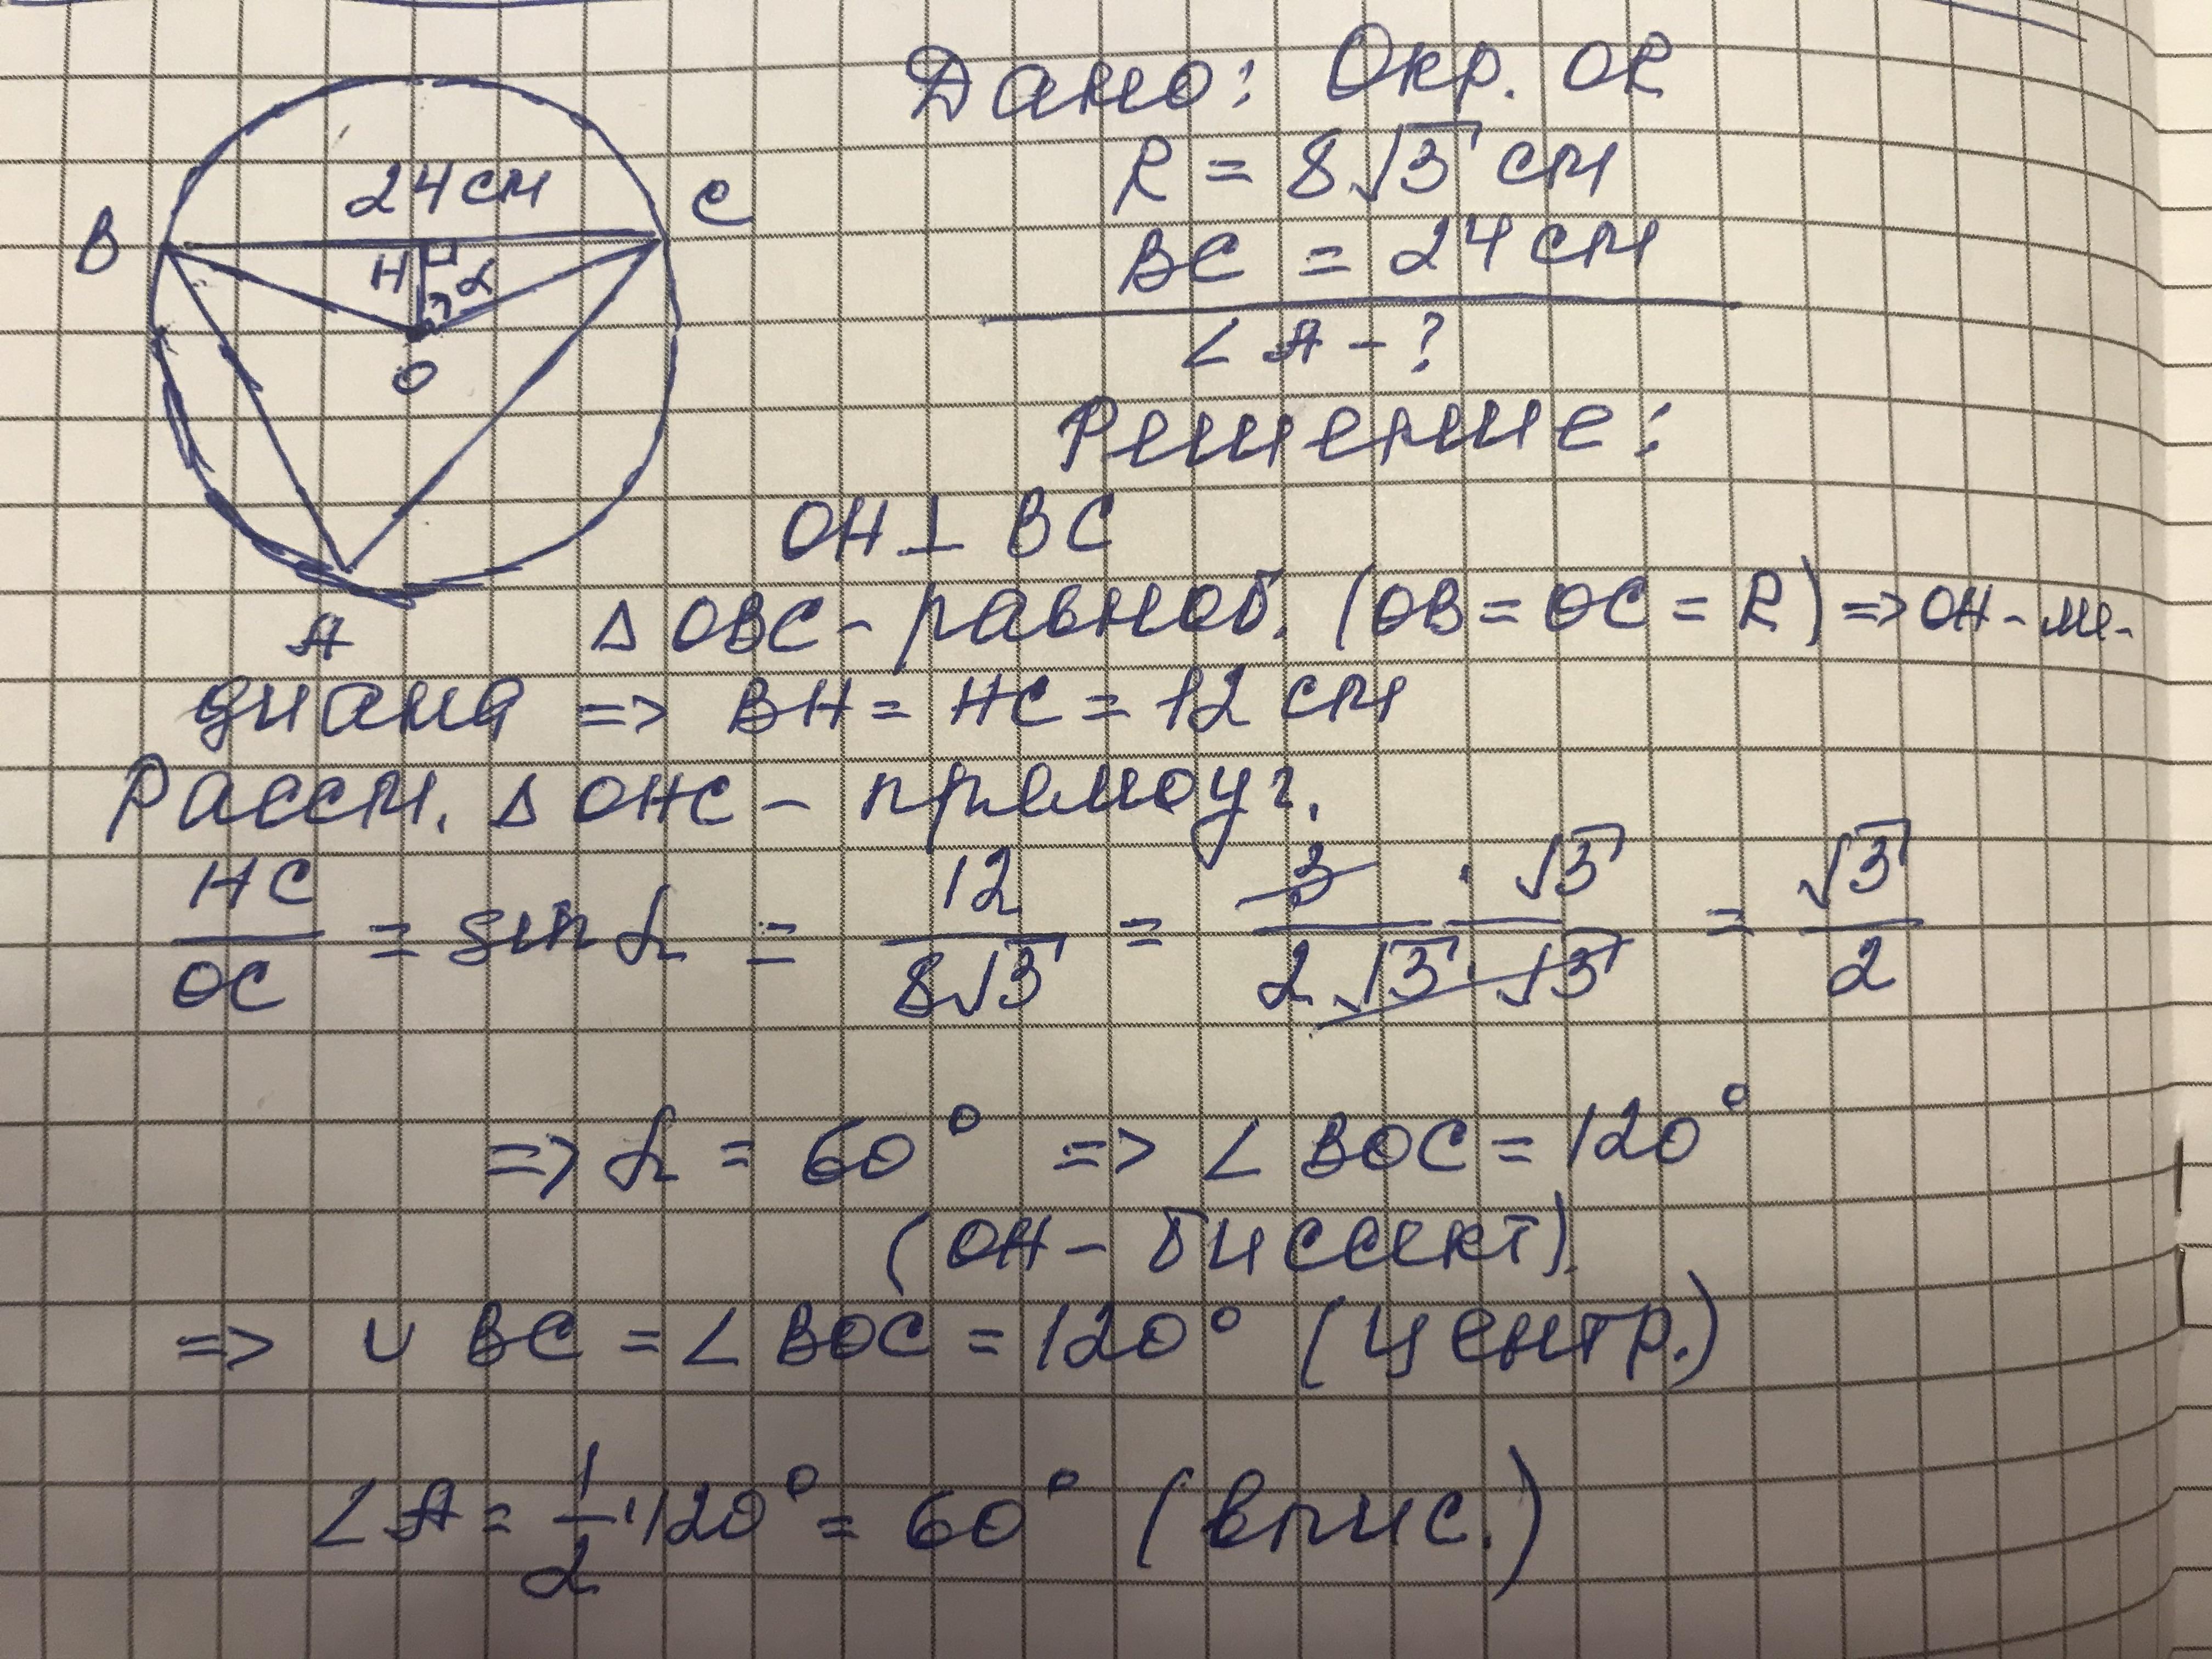 Дано: Окр. OR
R = 8√3 см
BC = 24 см
∠A - ?
24 см
B
C
H
α
O
A
Решение:
OH ⊥ BC
Δ OBC - равноб. (OB = OC = R) => OH - ме-
диана => BH = HC = 12 см
Рассм. Δ OHC - прямоуг.
HC/OC = sin α = 12/8√3 = 3 · √3/2√3 · √3 = √3/2
=> α = 60° => ∠ BOC = 120°
(OH - биссект).
=> ∪ BC = ∠ BOC = 120° (центр.)
∠A = 1/2 · 120° = 60° (впис.)